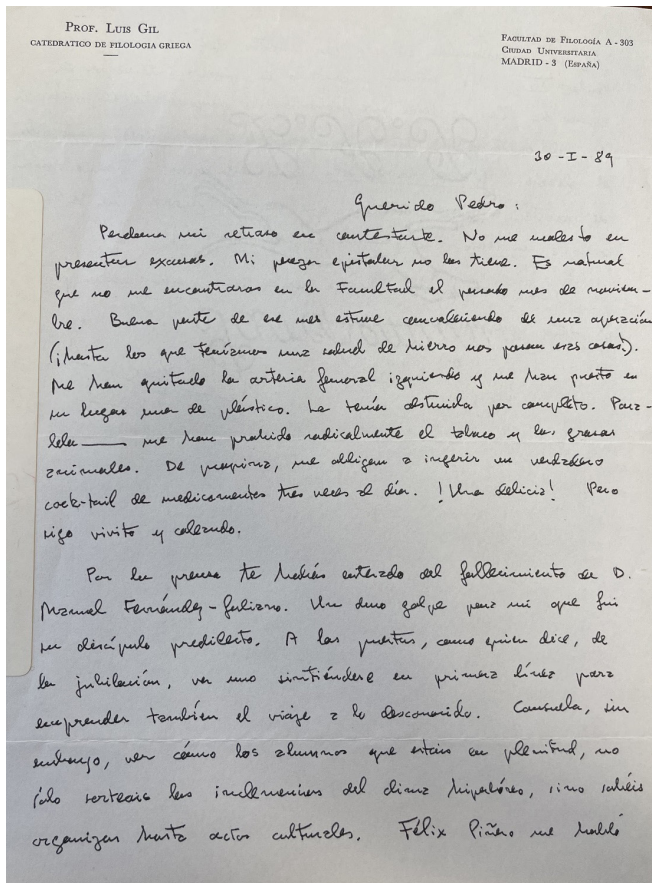 PROF. LUIS GIL
CATEDRATICO DE FILOLOGIA GRIEGA
FACULTAD DE FILOLOGÍA A - 303
CIUDAD UNIVERSITARIA
MADRID - 3 (ESPAÑA)
30-I-89
Querido Pedro:
Perdona mi retraso en contestarte. No me molesto en
presentar excusas. Mi pereza epistolar no las tiene. Es natural
que no me encontraras en la Facultad el pasado mes de noviem-
bre. Buena parte de ese mes estuve convaleciendo de una operación
(¡hasta los que teníamos una salud de hierro nos pasan esas cosas!).
Me han quitado la arteria femoral izquierda y me han puesto en
su lugar una de plástico. La tenía obstruida por completo. Para-
lela me han prohibido radicalmente el tabaco y las grasas
animales. De propina, me obligan a ingerir un verdadero
cock-tail de medicamentos tres veces al día. ¡Una delicia! Pero
sigo vivito y coleando.
Por la prensa te habrás enterado del fallecimiento de D.
Manuel Fernández-Galiano. Un duro golpe para mí que fui
su discípulo predilecto. A las puertas, como quien dice, de
la jubilación, va uno sintiéndose en primera línea para
emprender también el viaje a lo desconocido. Consuela, sin
embargo, ver cómo los alumnos que estáis en plenitud, no
sólo sorteais las inclemencias del clima hiperbóreo, sino sabéis
organizar hasta actos culturales. Félix Piñero me habló